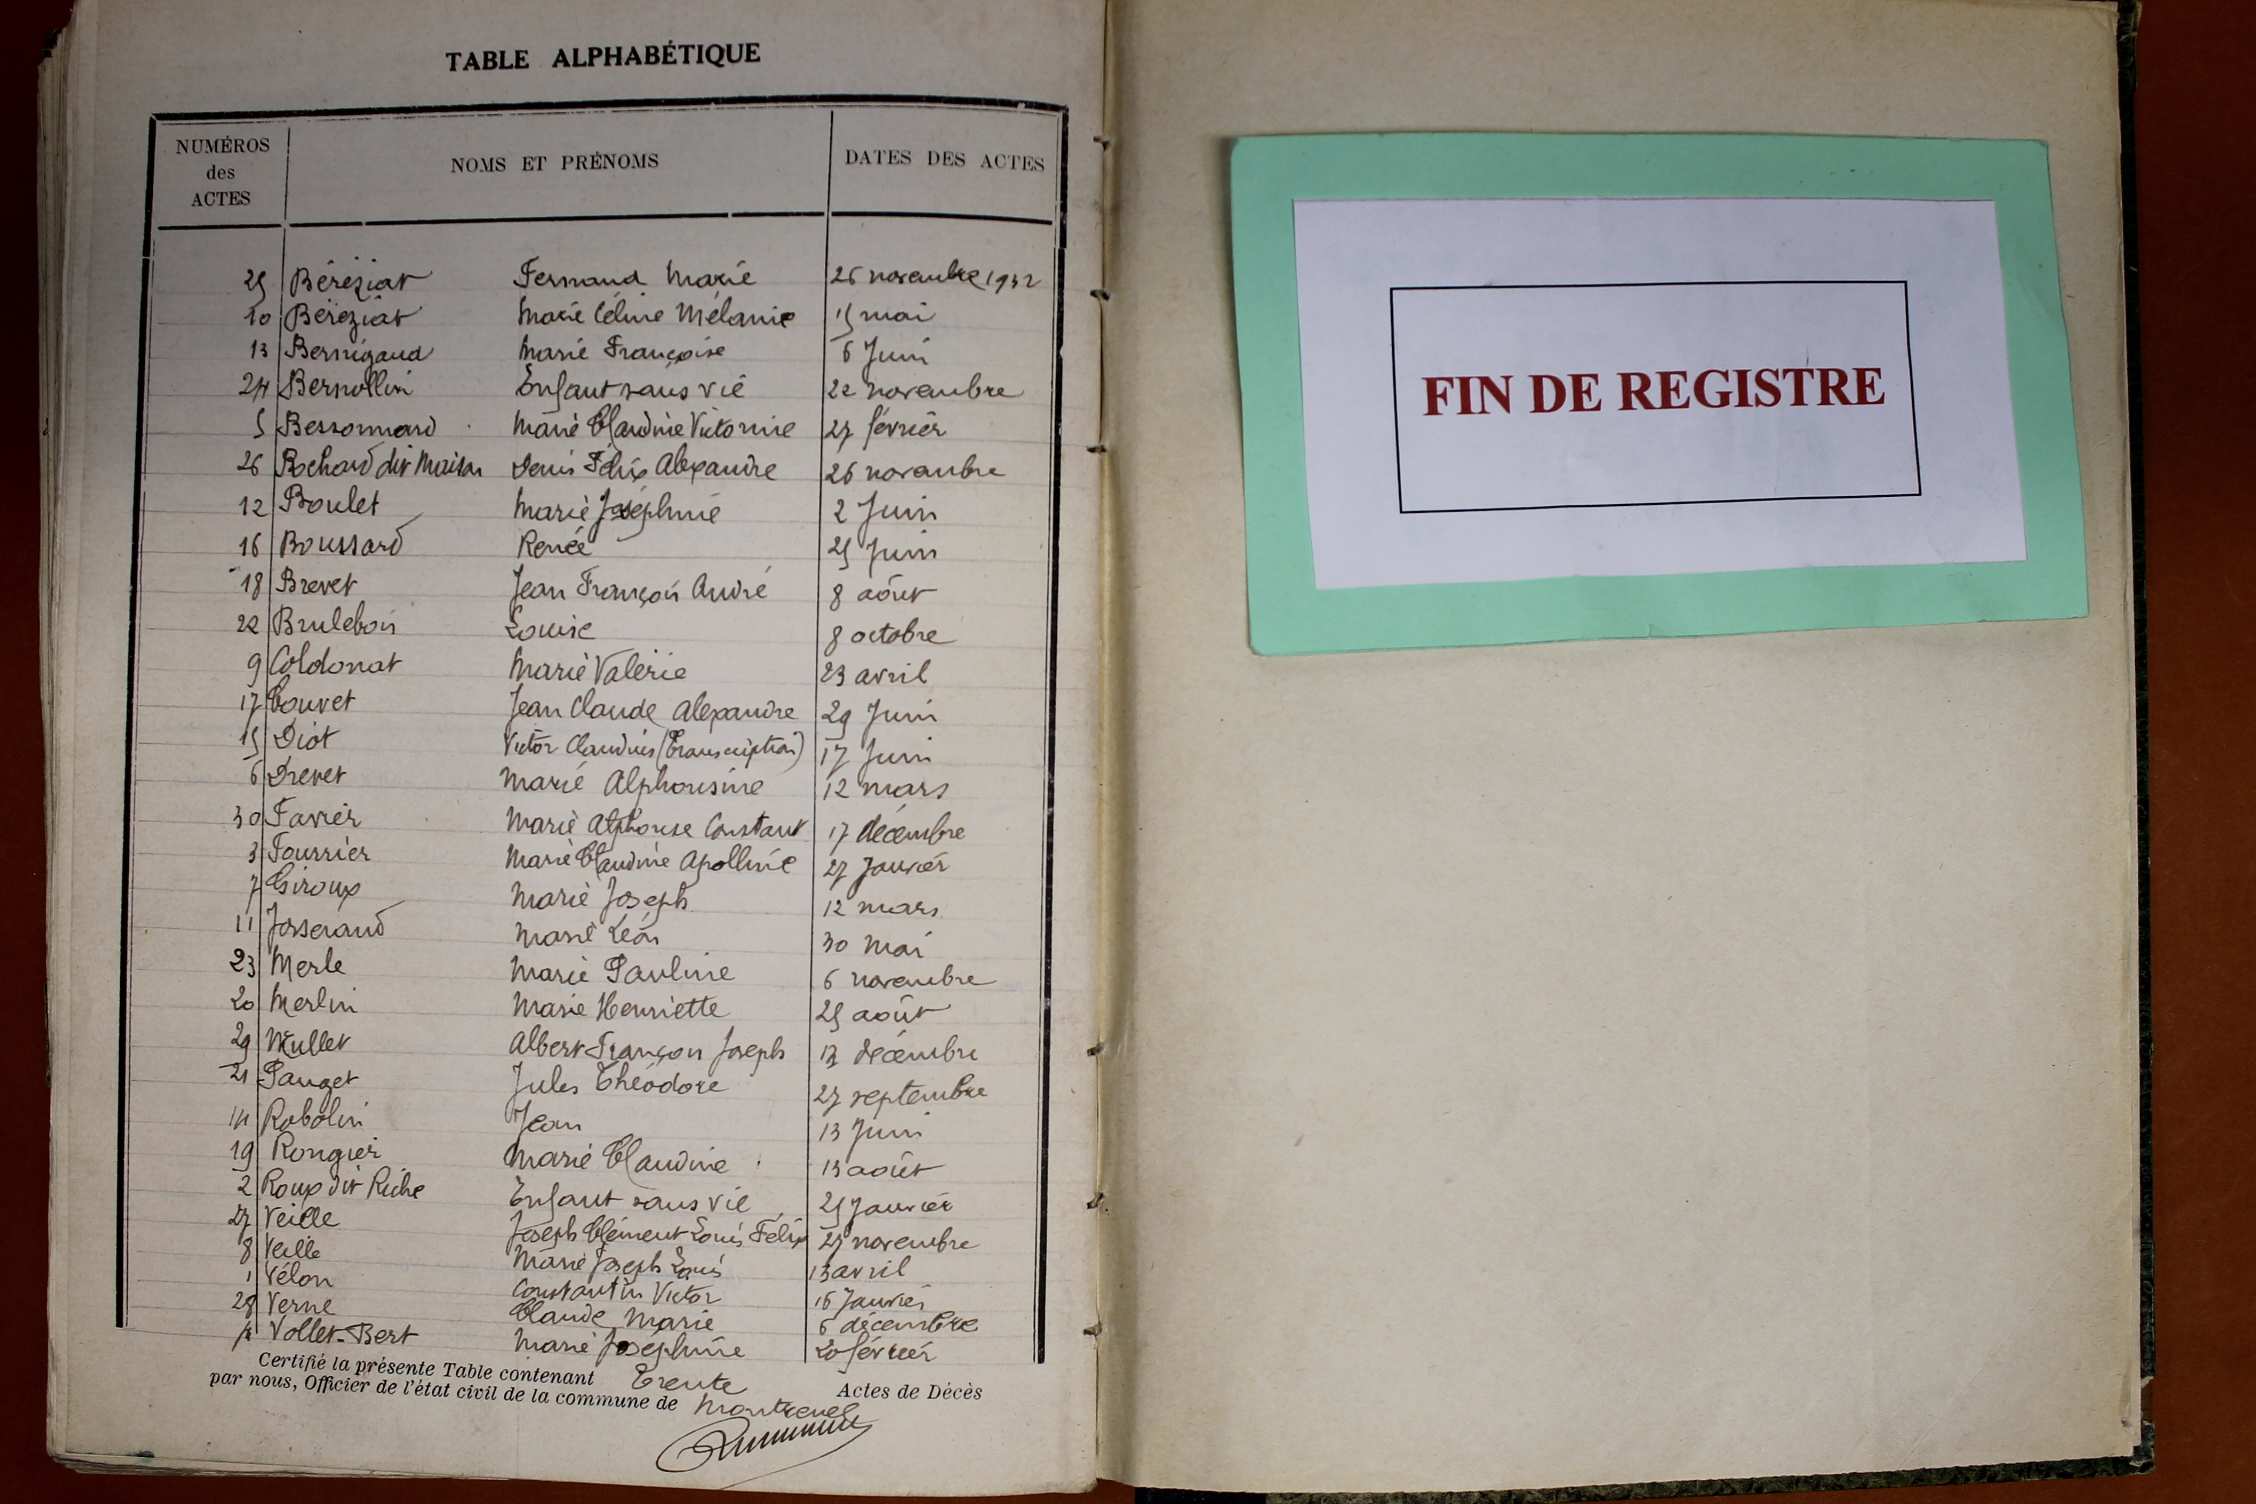 TABLE ALPHABÉTIQUE
NUMÉROS des ACTES NOMS ET PRÉNOMS DATES DES ACTES
25 Béréziat Fernand Marie 26 novembre 1932
10 Béréziat Marie Céline Mélanie 15 mai
13 Bernigaud Marie Françoise 6 Juin
24 Bernollin Enfant sans vie 22 novembre
5 Bessonnard Marie Claudine Victorine 27 février
26 Bochard dit Maitan Denis Félix Alexandre 26 novembre
12 Boulet Marie Joséphine 2 Juin
16 Boussard Renée 25 Juin
18 Brevet Jean François André 8 août
22 Brulebois Louise 8 octobre
9 Coldonat Marie Valérie 23 avril
17 Couvet Jean Claude Alexandre 29 Juin
15 Diot Victor Claudius (Transcription) 17 Juin
6 Drevet Marie Alphonsine 12 mars
30 Favier Marie Alphonse Constant 17 décembre
3 Fourrier Marie Claudine Apolline 27 Janvier
7 Giroux Marie Joseph 12 mars
11 Josserand Marie Léon 30 mai
23 Merle Marie Pauline 6 novembre
20 Merlin Marie Henriette 25 août
29 Mullet Albert François Joseph 12 décembre
21 Pauget Jules Théodore 27 septembre
14 Robolin Jean 13 Juin
19 Rongier Marie Claudine 13 août
2 Roux dit Riche Enfant sans vie 25 Janvier
27 Veille Joseph Clément Louis Félix 27 novembre
8 Veille Marie Joseph Louis 13 avril
1 Vélon Constantin Victor 16 Janvier
28 Verne Claude Marie 6 décembre
4 Vollet-Bert Marie Joséphine 20 février
Certifié la présente Table contenant Trente Actes de Décès
par nous, Officier de l'état civil de la commune de Montrevel
FIN DE REGISTRE